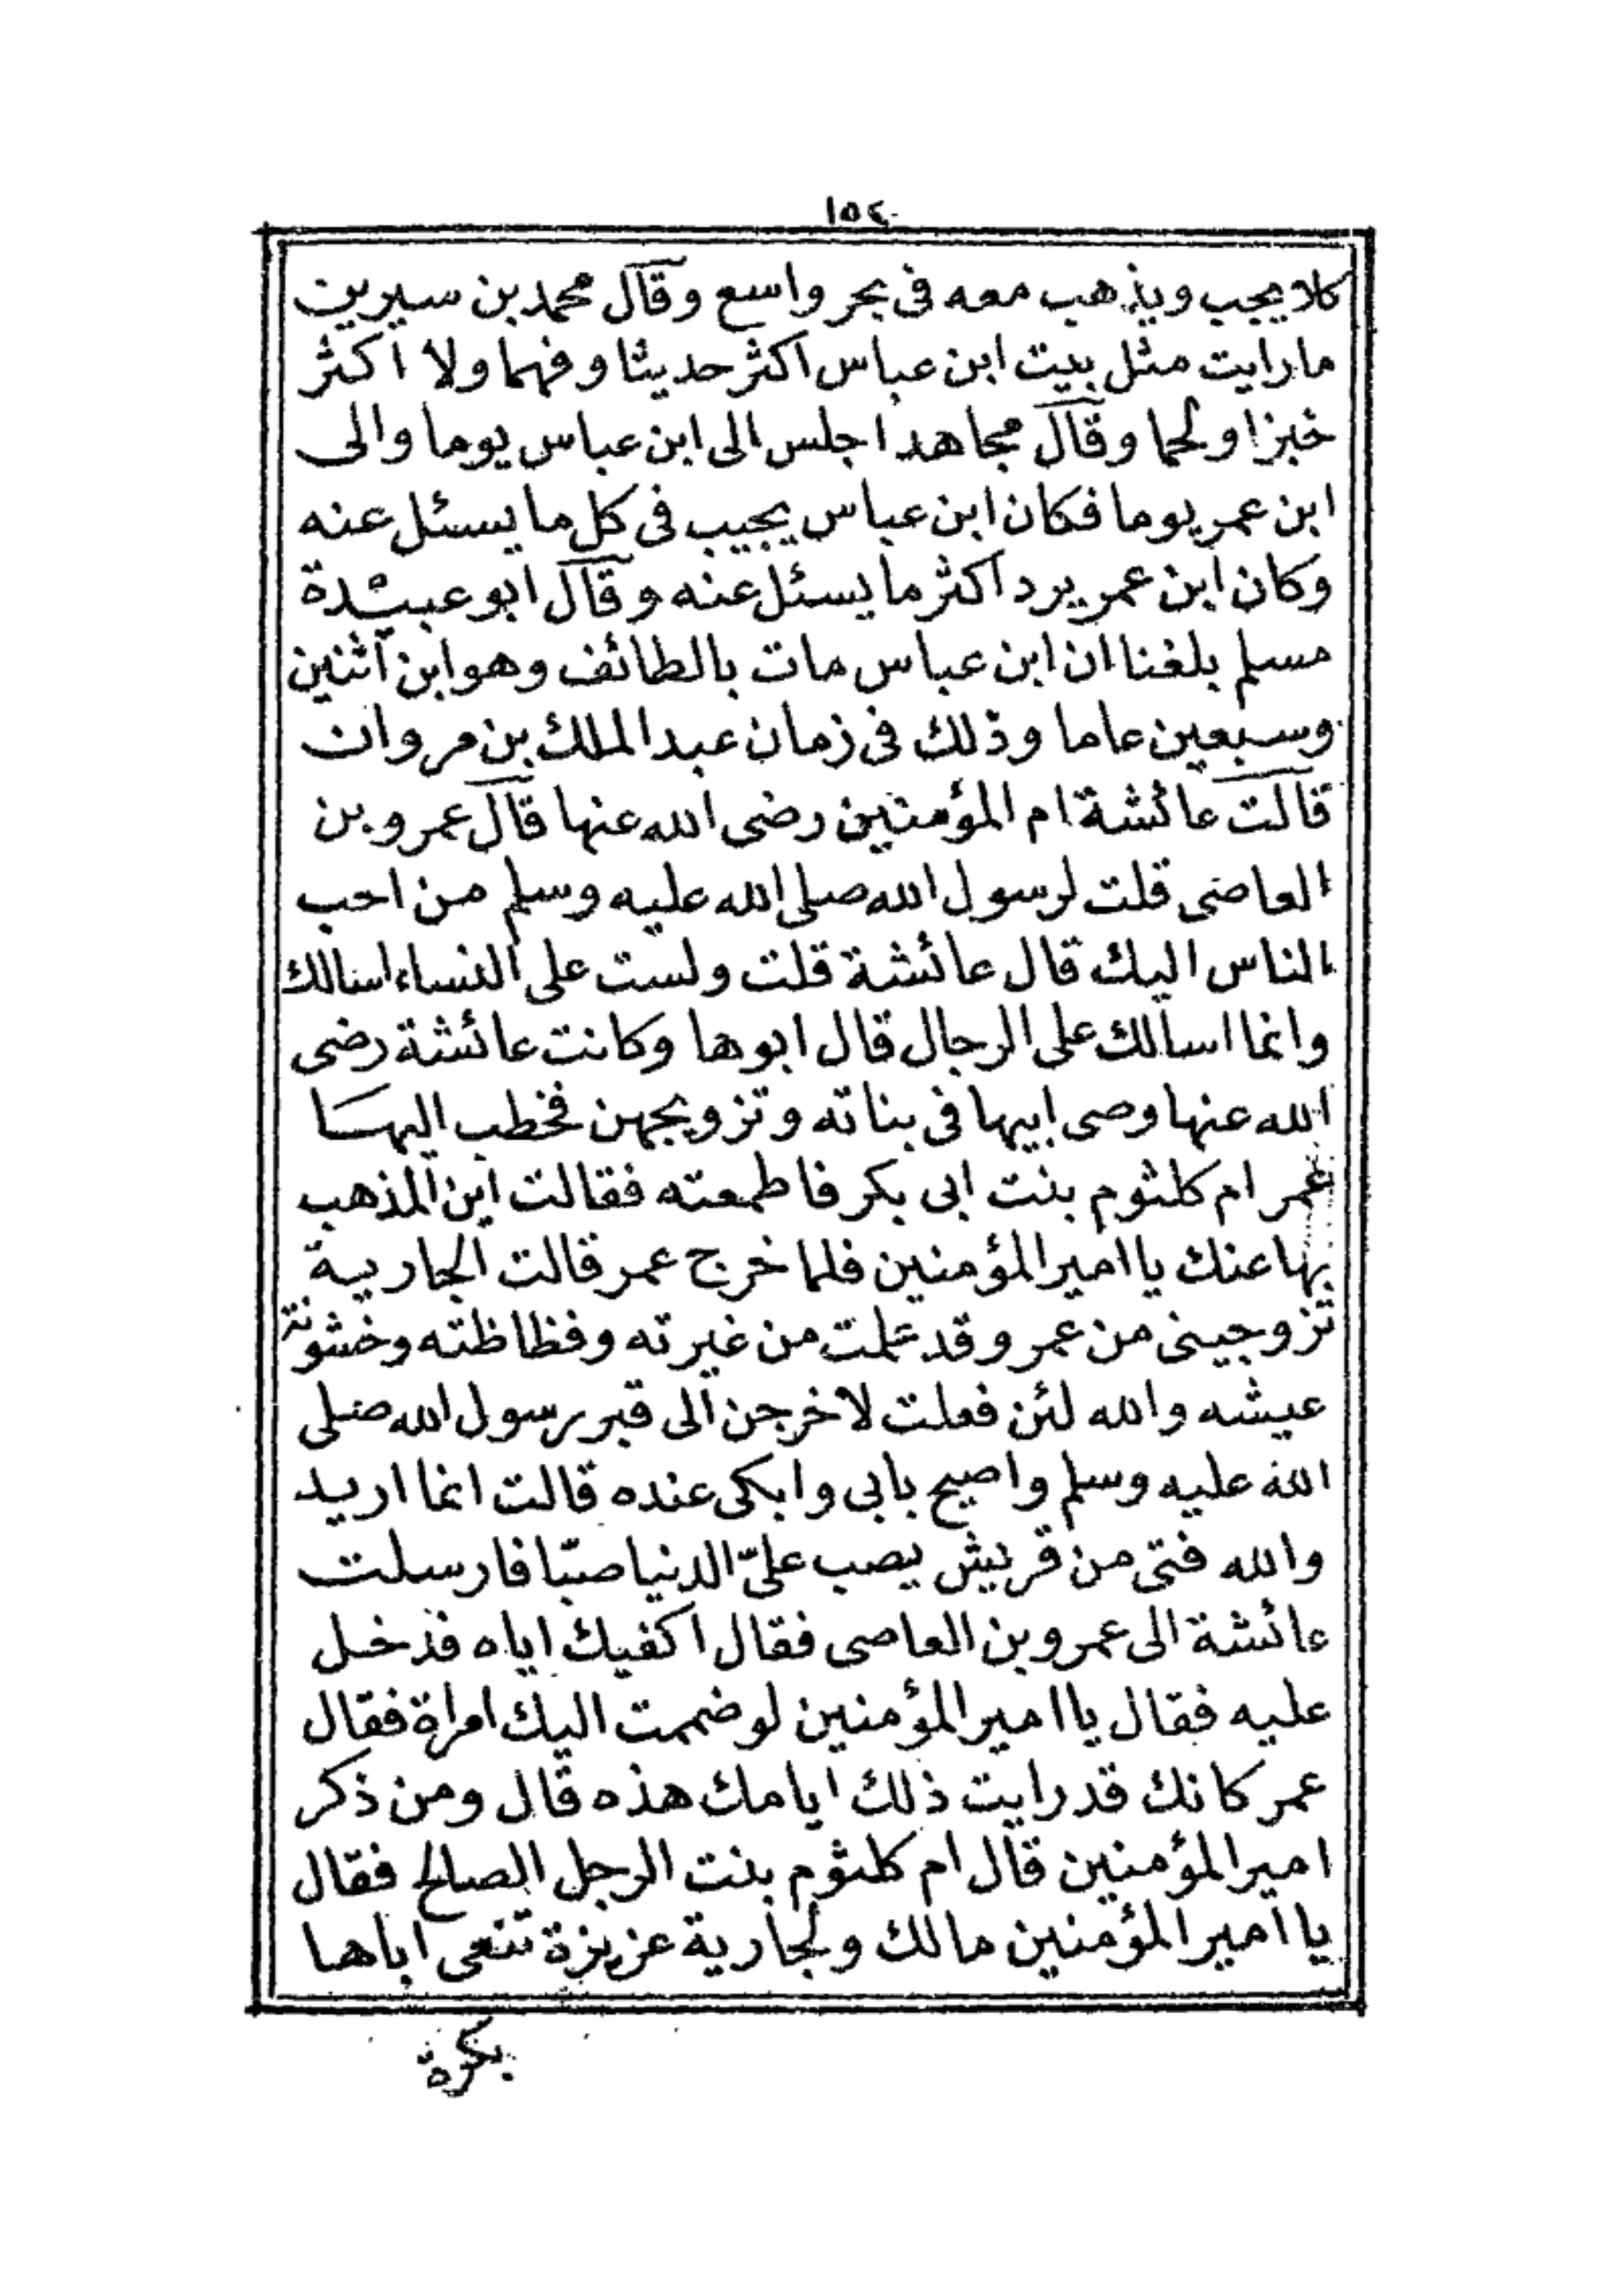 ١٥٤
كلا يجب ويذهب معه فى بحر واسع وقال محمد بن سيرين
مارايت مثل بيت ابن عباس اكثر حديثا وفهما ولا اكثر
خبزا ولحما وقال مجاهد اجلس الى ابن عباس يوما والى
ابن عمر يوما فكان ابن عباس يجيب فى كل ما يسئل عنه
وكان ابن عمر يرد اكثر ما يسئل عنه وقال ابو عبيدة
مسلم بلغنا ان ابن عباس مات بالطائف وهو ابن اثنين
وسبعين عاما وذلك فى زمان عبد الملك بن مروان
قالت عائشة ام المؤمنين رضى الله عنها قال عمرو بن
العاصى قلت لرسول الله صلى الله عليه وسلم من احب
الناس اليك قال عائشة قلت ولست على النساء اسالك
وانما اسالك على الرجال قال ابوها وكانت عائشة رضى
الله عنها وصى ابيها فى بناته وتزويجهن فخطب اليها
عمر ام كلثوم بنت ابى بكر فاطمعته فقالت اين المذهب
بها عنك يا امير المؤمنين فلما خرج عمر قالت الجارية
تزوجينى من عمر وقد علمت من غيرته وفظاظته وخشونة
عيشه والله لئن فعلت لاخرجن الى قبر رسول الله صلى
الله عليه وسلم واصيح بابى وابكى عنده قالت انما اريد
والله فتى من قريش يصب علىّ الدنيا صبّا فارسلت
عائشة الى عمرو بن العاصى فقال اكفيك اياه فدخل
عليه فقال يا امير المؤمنين لو ضممت اليك امراة فقال
عمر كانك قد رايت ذلك ايامك هذه قال ومن ذكر
امير المؤمنين قال ام كلثوم بنت الرجل الصالح فقال
يا امير المؤمنين مالك ولجارية عزيزة تنعى اباها
بكرة